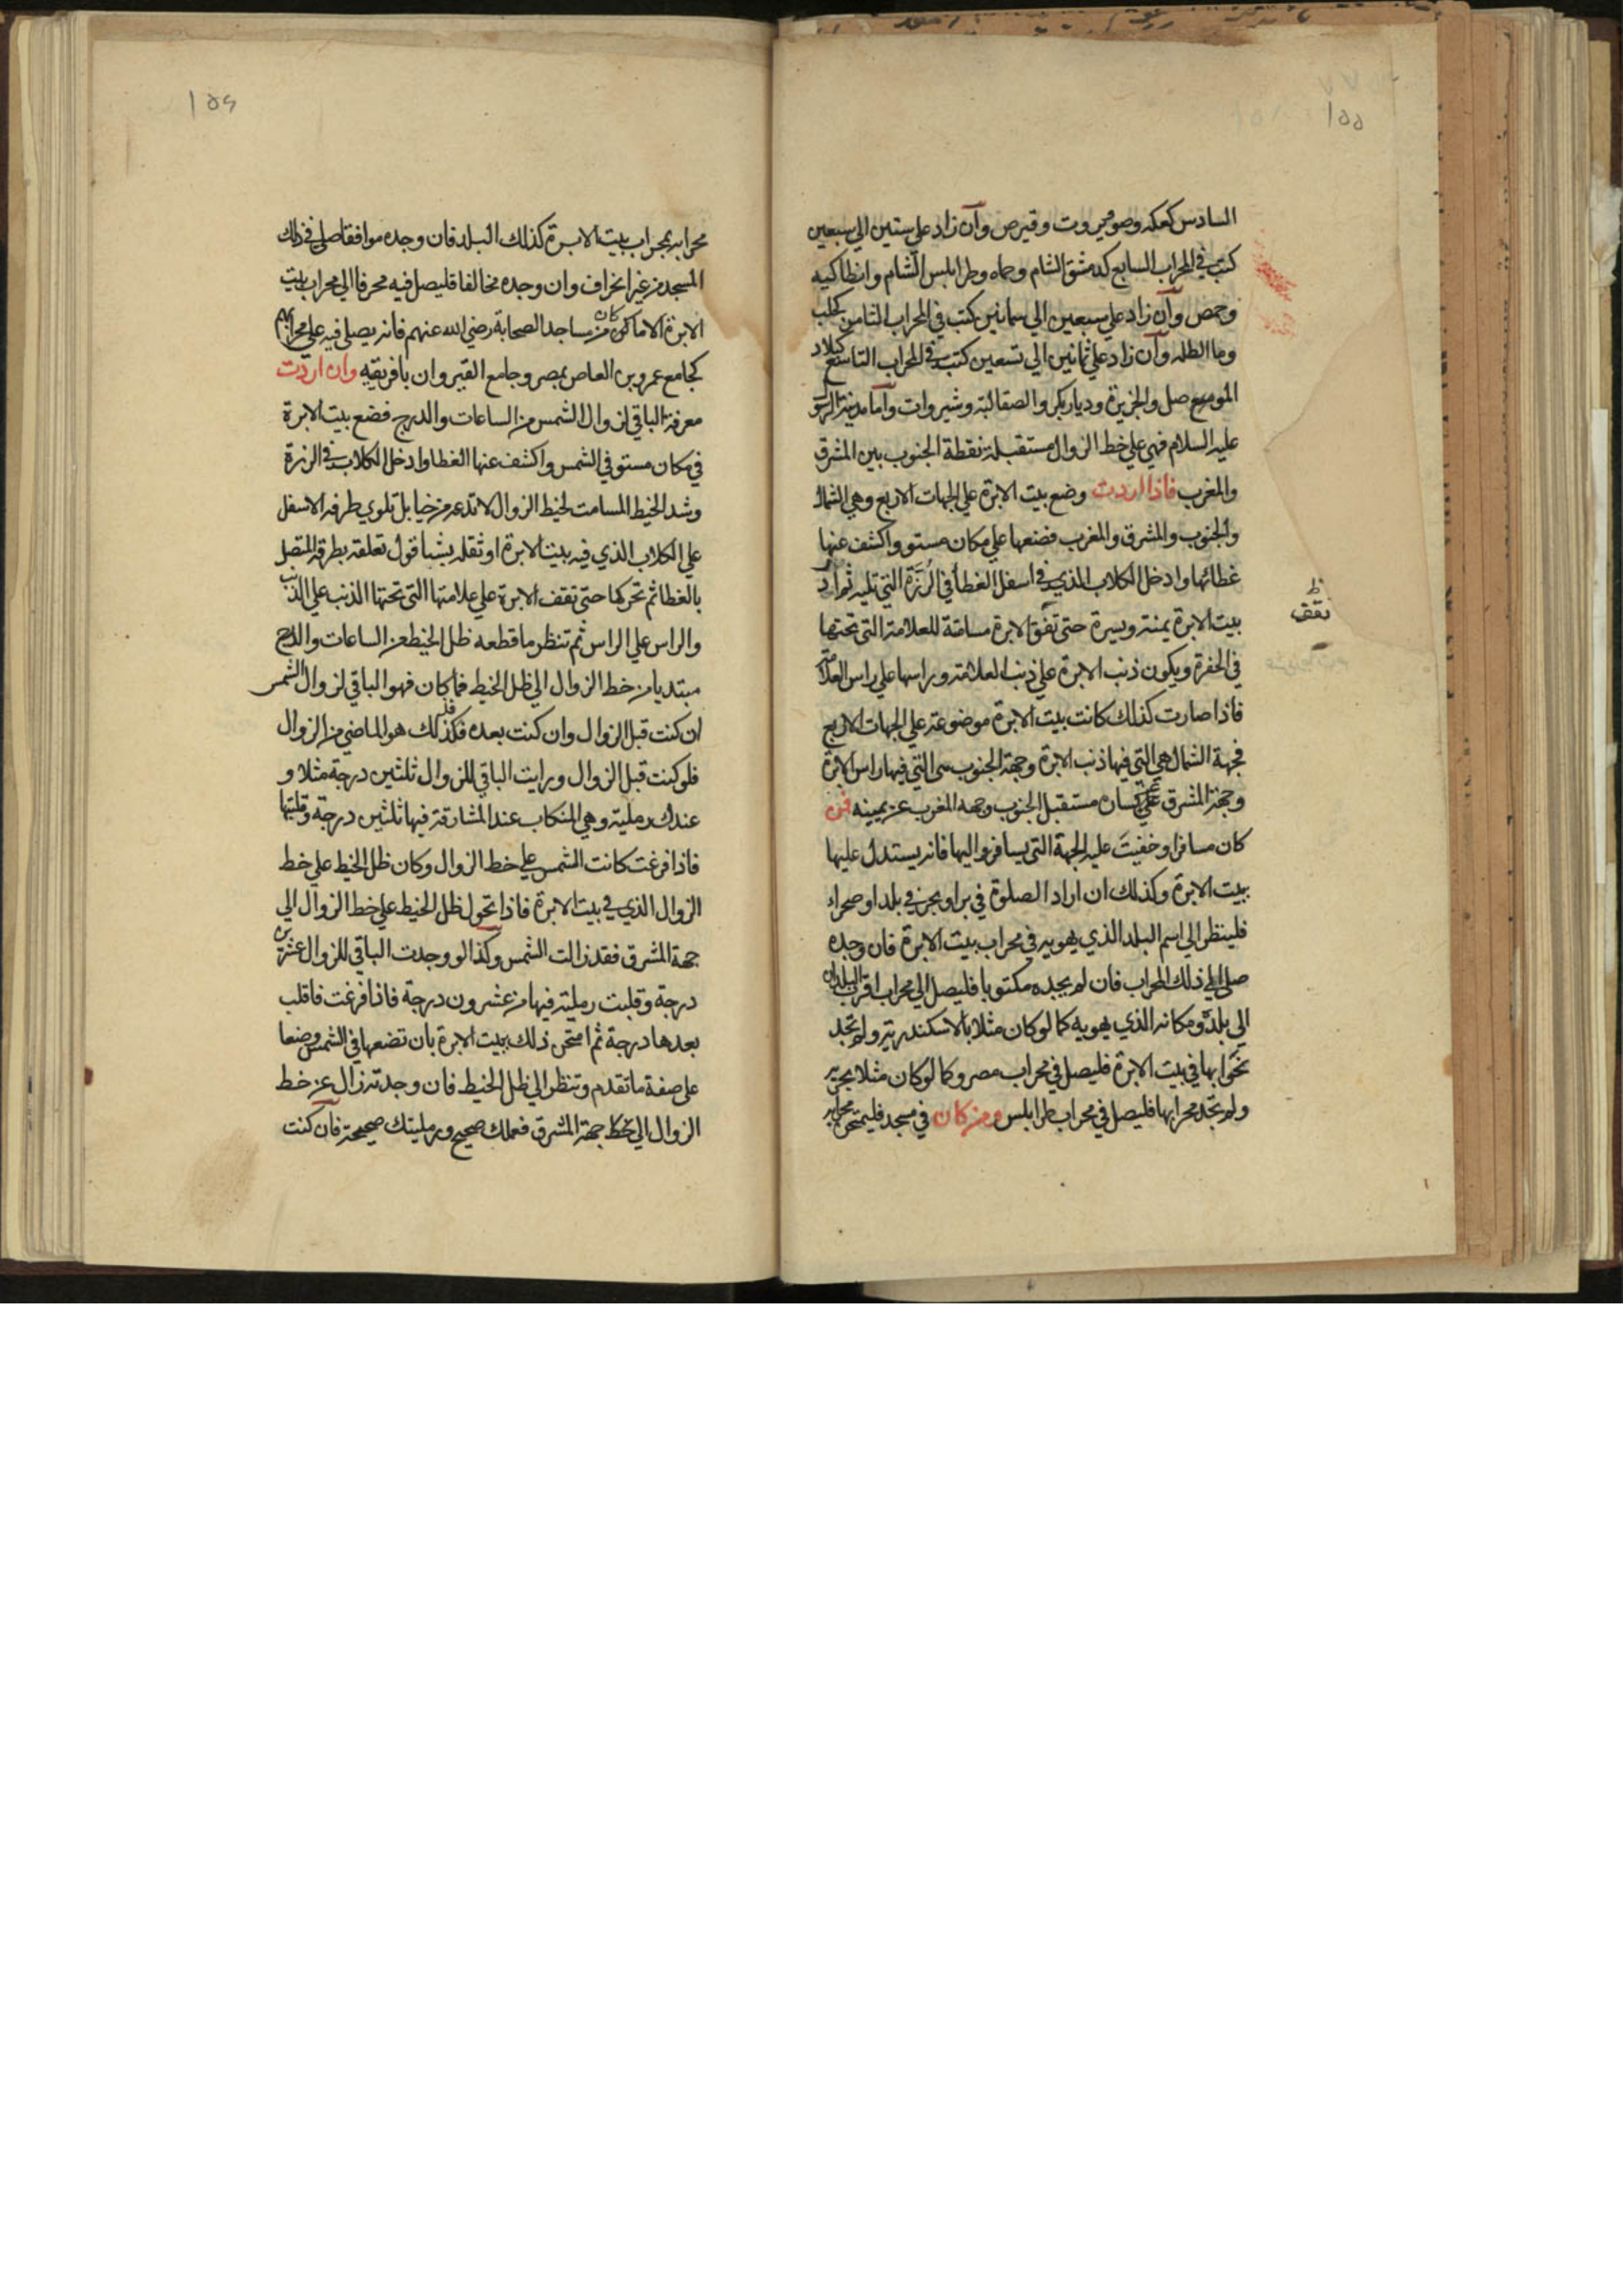 ١٥٥
السادس كعكه وصور وبيروت وقبرص وان زاد علي ستين الي سبعين
كتب في المحراب السابع كدمشق الشام وحماه وطرابلس الشام وانطاكيه
وحمص وان زاد علي سبعين الي ثمانين كتب في المحراب الثامن كحلب
وما الظله وان زاد علي ثمانين الي تسعين كتب في المحراب التاسع كبلاد
الموصل والجزيرة وديار بكر والصقالبة وشيروات واما مدينة الرسول
عليه السلام فهي علي خط الزوال مستقبلة نقطة الجنوب بين المشرق
والمغرب فاذا اردت وضع بيت الابرة علي الجهات الاربع وهي الشمال
والجنوب والمشرق والمغرب فضعها علي مكان مستو واكشف عنها
غطائها وادخل الكلاب الذي في اسفل الغطا في الرزة التي تليه ثم ادر
بيت الابرة يمنة ويسرة حتي تقف الابرة مسامتة للعلامة التي تحتها
ظ
تقف
في الحفرة ويكون ذنب الابرة علي ذنب العلامة وراسها علي راس العلامة
فاذا صارت كذلك كانت بيت الابرة موضوعة علي الجهات الاربع
فجهة الشمال هي التي فيها ذنب الابرة وجهة الجنوب هي التي فيها راس الابرة
وجهة المشرق علي يسار مستقبل الجنوب وجهه المغرب عن يمينه فمن
كان مسافرا وخفيت عليه الجهة التي يسافر اليها فانه يستدل عليها
ببيت الابرة وكذلك ان اراد الصلوة في بر او بحر في بلد او صحراء
فلينظر الي اسم البلد الذي هو به في محراب بيت الابرة فان وجده
صلي الي ذلك المحراب فان لم يجده مكتوبا فليصل الي محراب اقرب البلدان
الي بلده ومكانه الذي هو به كما لو كان مثلا بالاسكندرية ولم تجد
محرابها في بيت الابرة فليصل في محراب مصر وكما لو كان مثلا بجربه
ولم تجد محرابها فليصل في محراب طرابلس ومن كان في مسجد فليمتحن محرابه
١٥٦
محرابه بمحراب بيت الابرة كذلك البلد فان وجده موافقا صلي في ذلك
المسجد من غير انحراف وان وجده مخالفا فليصل فيه محرفا الي محراب بيت
الابرة الا ما كان من مساجد الصحابة رضي الله عنهم فانه يصلي فيه علي محرابهم
كجامع عمرو بن العاص بمصر وجامع القيروان بافريقيه وان اردت
معرفة الباقي لزوال الشمس من الساعات والدرج فضع بيت الابرة
في مكان مستو في الشمس واكشف عنها الغطا وادخل الكلاب في الرزة
وشد الخيط المسامت لخيط الزوال لا تدعه مرخيا بل تلوي طرفه الاسفل
علي الكلاب الذي فيه بيت الابرة او ثقله بشيا قول تعلقه بطرفه المتصل
بالغطا ثم تحركها حتي تقف الابرة علي علامتها التي تحتها الذنب علي الذنب
والراس علي الراس ثم تنظر ما قطعه ظل الخيط من الساعات والدرج
مبتديا من خط الزوال الي ظل الخيط فما كان فهو الباقي لزوال الشمس
ان كنت قبل الزوال وان كنت بعده فكذلك هو الماضي من الزوال
فلو كنت قبل الزوال ورايت الباقي للزوال ثلثين درجة مثلا و
عندك رملية وهي المنكاب عند المشارقة فيها ثلثين درجة وقلبتها
فاذا فرغت كانت الشمس علي خط الزوال وكان ظل الخيط علي خط
الزوال الذي في بيت الابرة فاذا تحول ظل الخيط علي خط الزوال الي
جهة المشرق فقد زالت الشمس وكذا لو وجدت الباقي للزوال عشرين
درجة وقلبت رملية فيها من عشرون درجة فاذا فرغت فاقلب
بعدها درجة ثم امتحن ذلك ببيت الابرة بان تضعها في الشمس وضعا
علي صفة ما تقدم وتنظر الي ظل الخيط فان وجدته زال عن خط
الزوال الي خط جهة المشرق فعملك صحيح ورمليتك صحيحة فان كنت